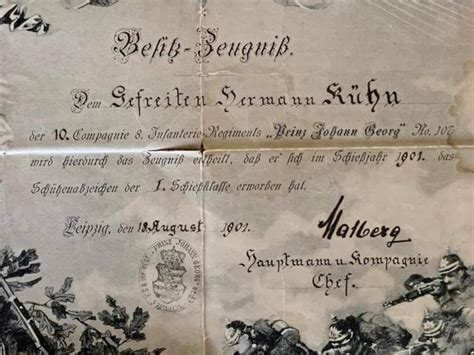 Besitz-Zeugniß.
Dem Gefreiten Hermann Kühn
der 10. Compagnie 8. Infanterie-Regiments „Prinz Johann Georg" No. 107
wird hierdurch das Zeugniß ertheilt, daß er sich im Schießjahr 1901. das
Schützenabzeichen der I. Schießklasse erworben hat.
Leipzig, den 18. August 1901.
Malberg
Hauptmann u. Kompagnie
Chef.
PRINZ JOHANN GEORG